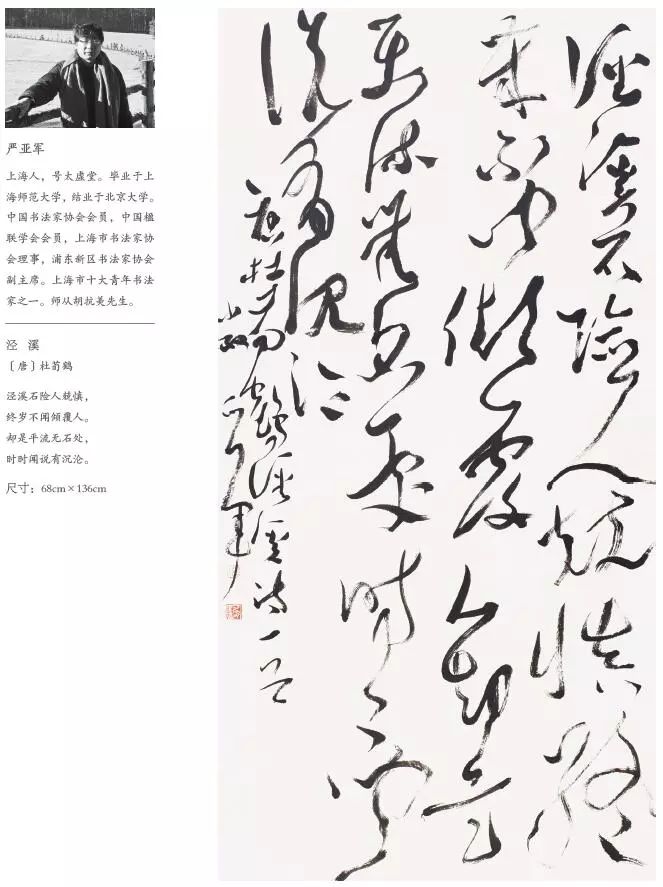 严亚军
上海人，号太虚堂。毕业于上
海师范大学，结业于北京大学。
中国书法家协会会员，中国楹
联学会会员，上海市书法家协
会理事，浦东新区书法家协会
副主席。上海市十大青年书法
家之一。师从胡抗美先生。
泾 溪
〔唐〕杜荀鹤
泾溪石险人兢慎，
终岁不闻倾覆人。
却是平流无石处，
时时闻说有沉沦。
尺寸：68cm×136cm
涇溪石險人兢慎終
歲不聞傾覆人却是
平流無石處時時聞
說有沉淪
杜荀鶴涇溪詩一首
亞軍